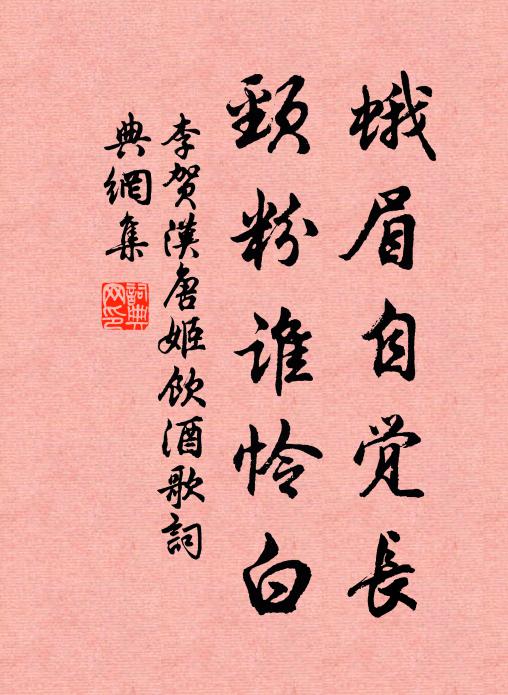 蛾眉自觉長
頸粉誰怜白
李贺漢唐姬飲酒歌詞
典網集
詞典网印